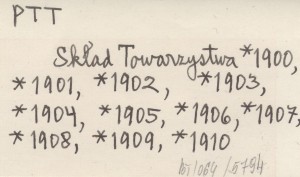 PTT
Skład Towarzystwa *1900,
*1901, *1902, *1903,
*1904, *1905, *1906, *1907,
*1908, *1909, *1910